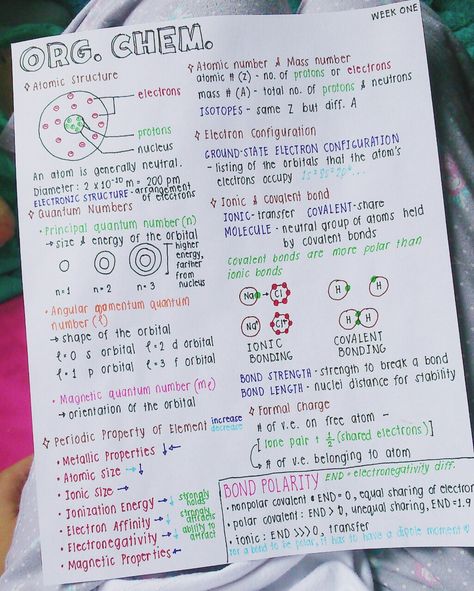 WEEK ONE
ORG. CHEM.
Atomic Structure
electrons
protons
nucleus
An atom is generally neutral.
Diameter: 2 x 10⁻¹⁰ m = 200 pm
ELECTRONIC STRUCTURE - arrangement
of electrons
Quantum Numbers
• Principal quantum number (n)
→ size & energy of the orbital
higher
energy,
farther
from
nucleus
n=1 n=2 n=3
• Angular momentum quantum
number (ℓ)
→ shape of the orbital
ℓ=0 s orbital ℓ=2 d orbital
ℓ=1 p orbital ℓ=3 f orbital
• Magnetic quantum number (mℓ)
→ orientation of the orbital
Periodic Property of Element increase
decrease
• Metallic Properties ↓←
• Atomic Size →↓
• Ionic Size →
• Ionization Energy →↓ strongly
holds
• Electron Affinity →↓ strongly
attracts
• Electronegativity →↓ ability to
attract
• Magnetic Properties ←
Atomic number & Mass number
atomic # (Z) - no. of protons or electrons
mass # (A) - total no. of protons & neutrons
ISOTOPES - same Z but diff. A
Electron Configuration
GROUND-STATE ELECTRON CONFIGURATION
- listing of the orbitals that the atom's
electrons occupy 1s² 2s² 2p⁶...
Ionic & covalent bond
IONIC - transfer COVALENT - share
MOLECULE - neutral group of atoms held
by covalent bonds
covalent bonds are more polar than
ionic bonds
Na → Cl H H
Na⁺ Cl H H
IONIC
BONDING
COVALENT
BONDING
BOND STRENGTH - strength to break a bond
BOND LENGTH - nuclei distance for stability
Formal Charge
# of v.e. on free atom -
[lone pair + ½ (shared electrons)]
→ # of v.e. belonging to atom
BOND POLARITY END = electronegativity diff.
• nonpolar covalent END = 0, equal sharing of electron
• polar covalent: END > 0, unequal sharing, END = 1.9
• ionic: END >>> 0, transfer
for a bond to be polar, it has to have a dipole moment